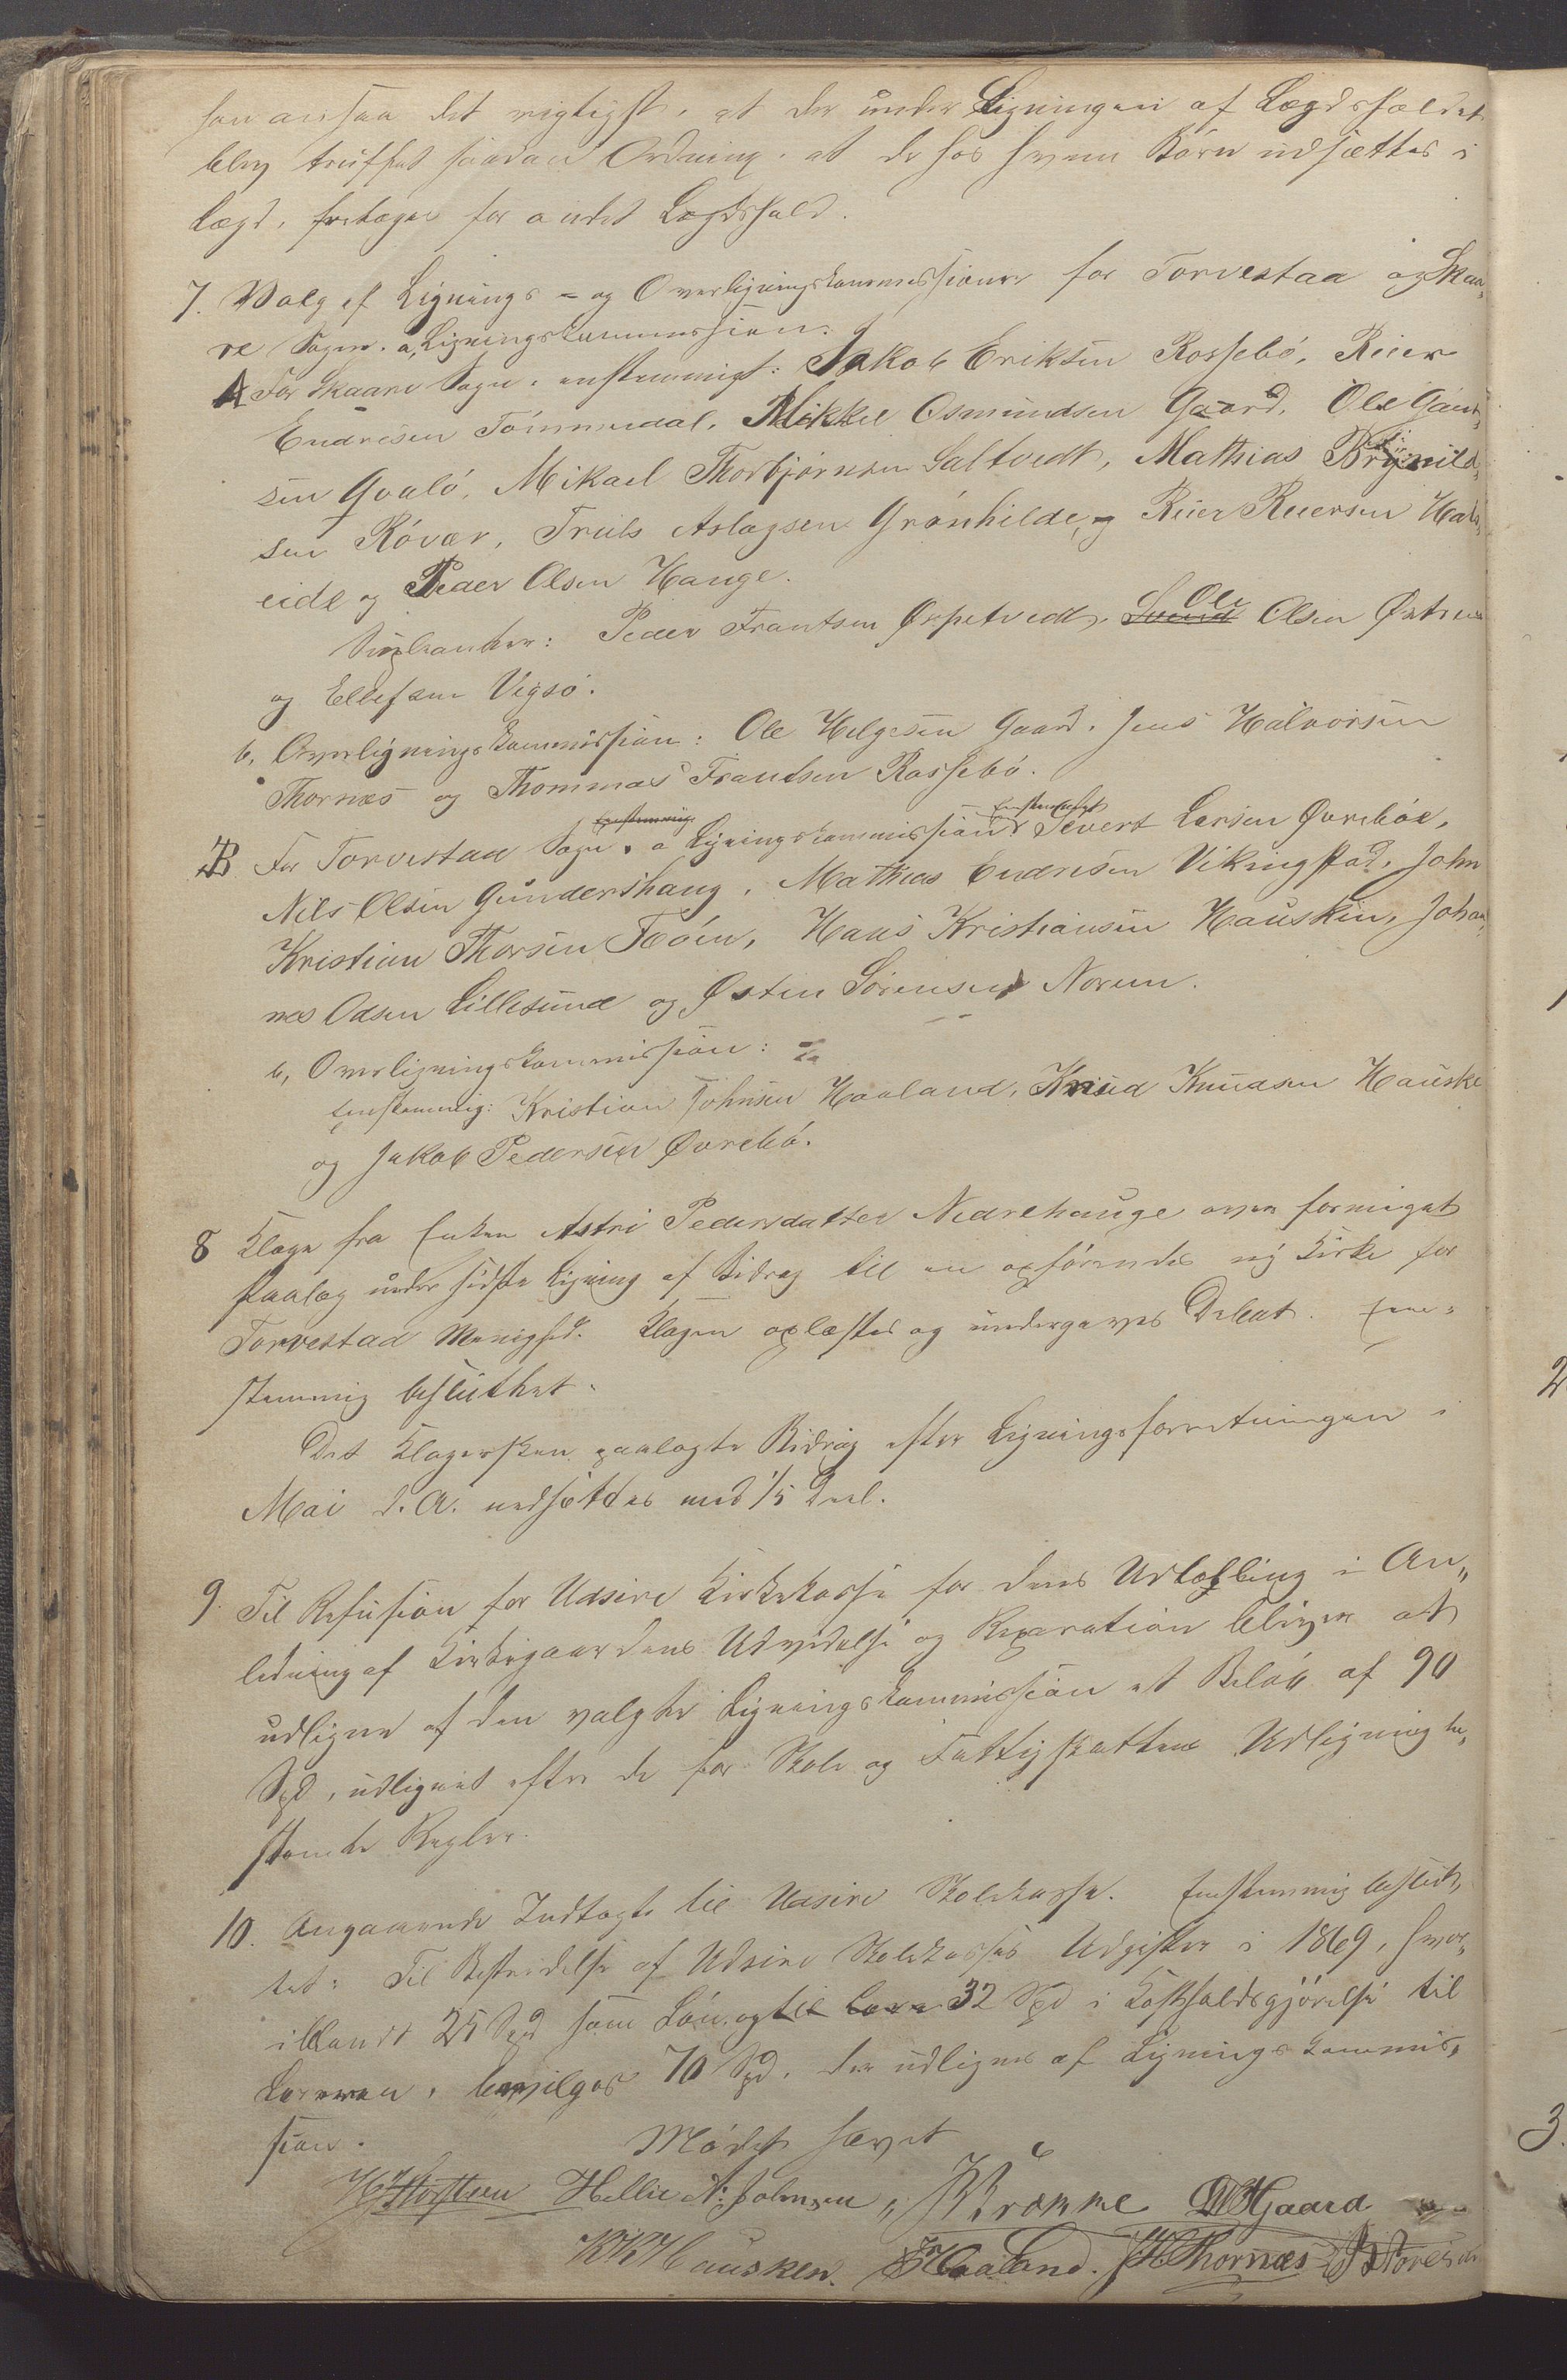 han ansaa det rigtigst, at der under Ligningen af Lægdsholdet
blev truffet saadan Ordning, at de hos hvem Børn udsættes i
Lægd, fritages for andet Lægdshold.
7. Valg af Lignings- og Overligningskommissioner for Torvestad og Skaa-
re Sogne. a, Ligningskommission:
A For Skaare Sogn, enstemmigt: Jakob Eriksen Rossebø, Reier
Endresen Tømmerdal, Mikkel Osmundsen Gaard, Ole Gaut-
sen Gvalø, Mikael Thorbjørnsen Saltvedt, Mathias Brynild-
sen Røvær, Truls Aslagsen Grønhilde, og Reier Reiersen Hals-
eide og Peder Olsen Hauge.
Supleanter: Peder Frantsen Ørpetvedt, Svend Ole Olsen Østrem
og Ellefsen Vigsø.
b, Overligningskommission: Ole Helgesen Gaard, Jens Halvorsen
Thornes og Thommas Frantsen Rossebø.
B For Torvestad Sogn, enstemmig a Ligningskommission: Enstemmigt Sivert Larsen Øvrebøe,
Nils Olsen Gundershaug, Mathias Endresen Vikingstad, John
Kristian Thorsen Feøen, Hans Kristiansen Hausken, Johan-
nes Odsen Lillesund og Østen Sørensen Norem.
b, Overligningskommission:
Enstemmig: Kristian Johnsen Haaland, Knud Knudsen Hauske
og Jakob Pedersen Øvrebø.
8 Klage fra Enken Astri Pedersdatter Nedrehauge over formeget
Paalæg under sidste Ligning af Bidrag til en opførendes ny Kirke for
Torvestad Menighed. Klagen oplæstes og undergaves Debat. Een-
stemmig besluttet:
Det Klagersken paalagte Bidrag efter Ligningsforretningen i
Mai d. A. nedsættes med 1/5 Deel.
9 Til Refusion for Udsire Kirkekasse for dens Udtælling i An-
ledning af Kirkegaardens Udvidelse og Reparation bliver at
udligne af den valgte Ligningskommission et Beløb af 90
Spd, udlignet efter de for Skole og Fattigskattens Udligning be-
stemte Regler.
10. Angaaende Indtægt til Udsire Skolekasse. Enstemmig beslut-
tet: Til Bestridelse af Udsire Skolekasses Udgifter i 1869, hvor-
iblandt 25 Spd som Løn, og til Lære 32 Spd i Kostholdsgjørelse til
Læreren, bevilges 70 Spd, der udlignes af Ligningskommis-
sion.
Mødet hævet
Hellie N. Johnsen Kromme OHGaard
KKHausken. KJHaaland. JHThornæs